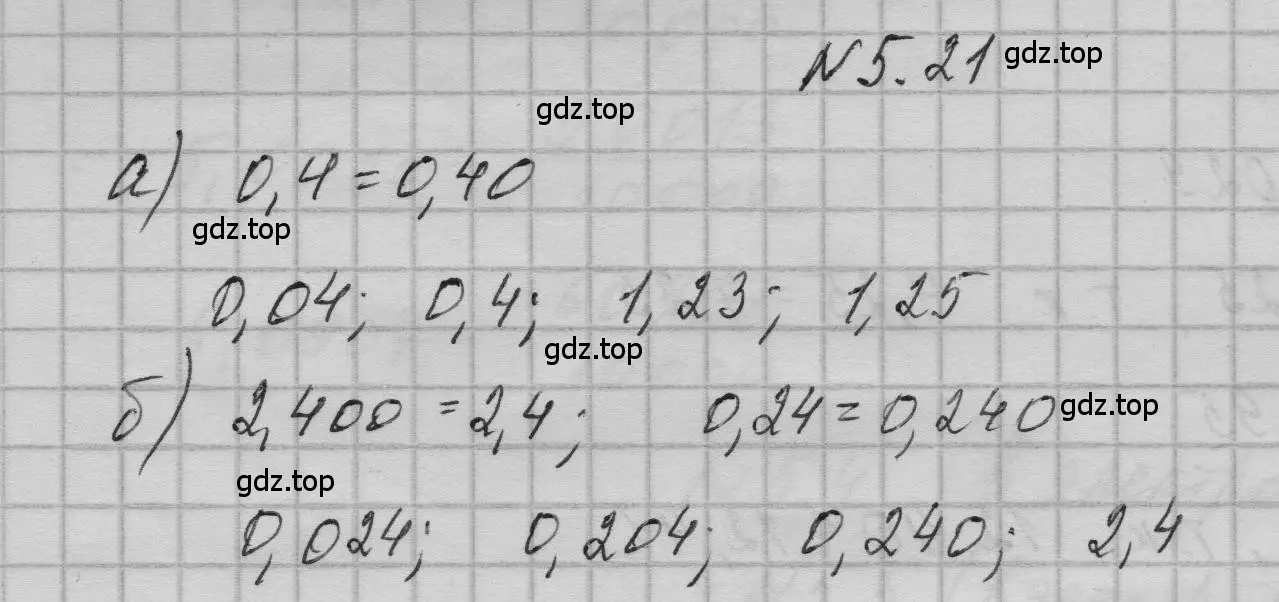 № 5.21 gdz.top
gdz.top
а) 0,4 = 0,40
gdz.top
0,04; 0,4; 1,23; 1,25
gdz.top
б) 2,400 = 2,4; 0,24 = 0,240 gdz.top
gdz.top
0,024; 0,204; 0,240; 2,4